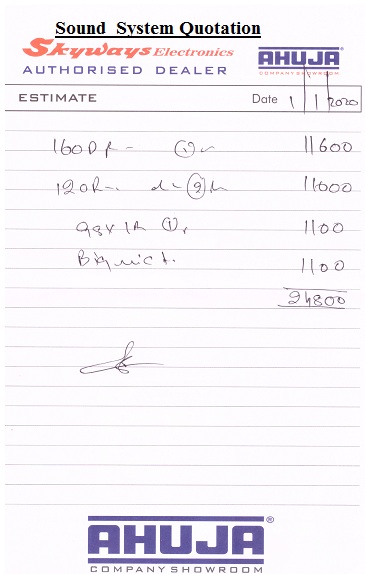 Sound System Quotation
Skyways Electronics
AHUJA
AUTHORISED DEALER
COMPANY SHOWROOM
ESTIMATE Date 1/1/2020
160DP - ① 11600
120R - ② 11000
① 1100
Big mic 1100
24800
AHUJA®
COMPANY SHOWROOM